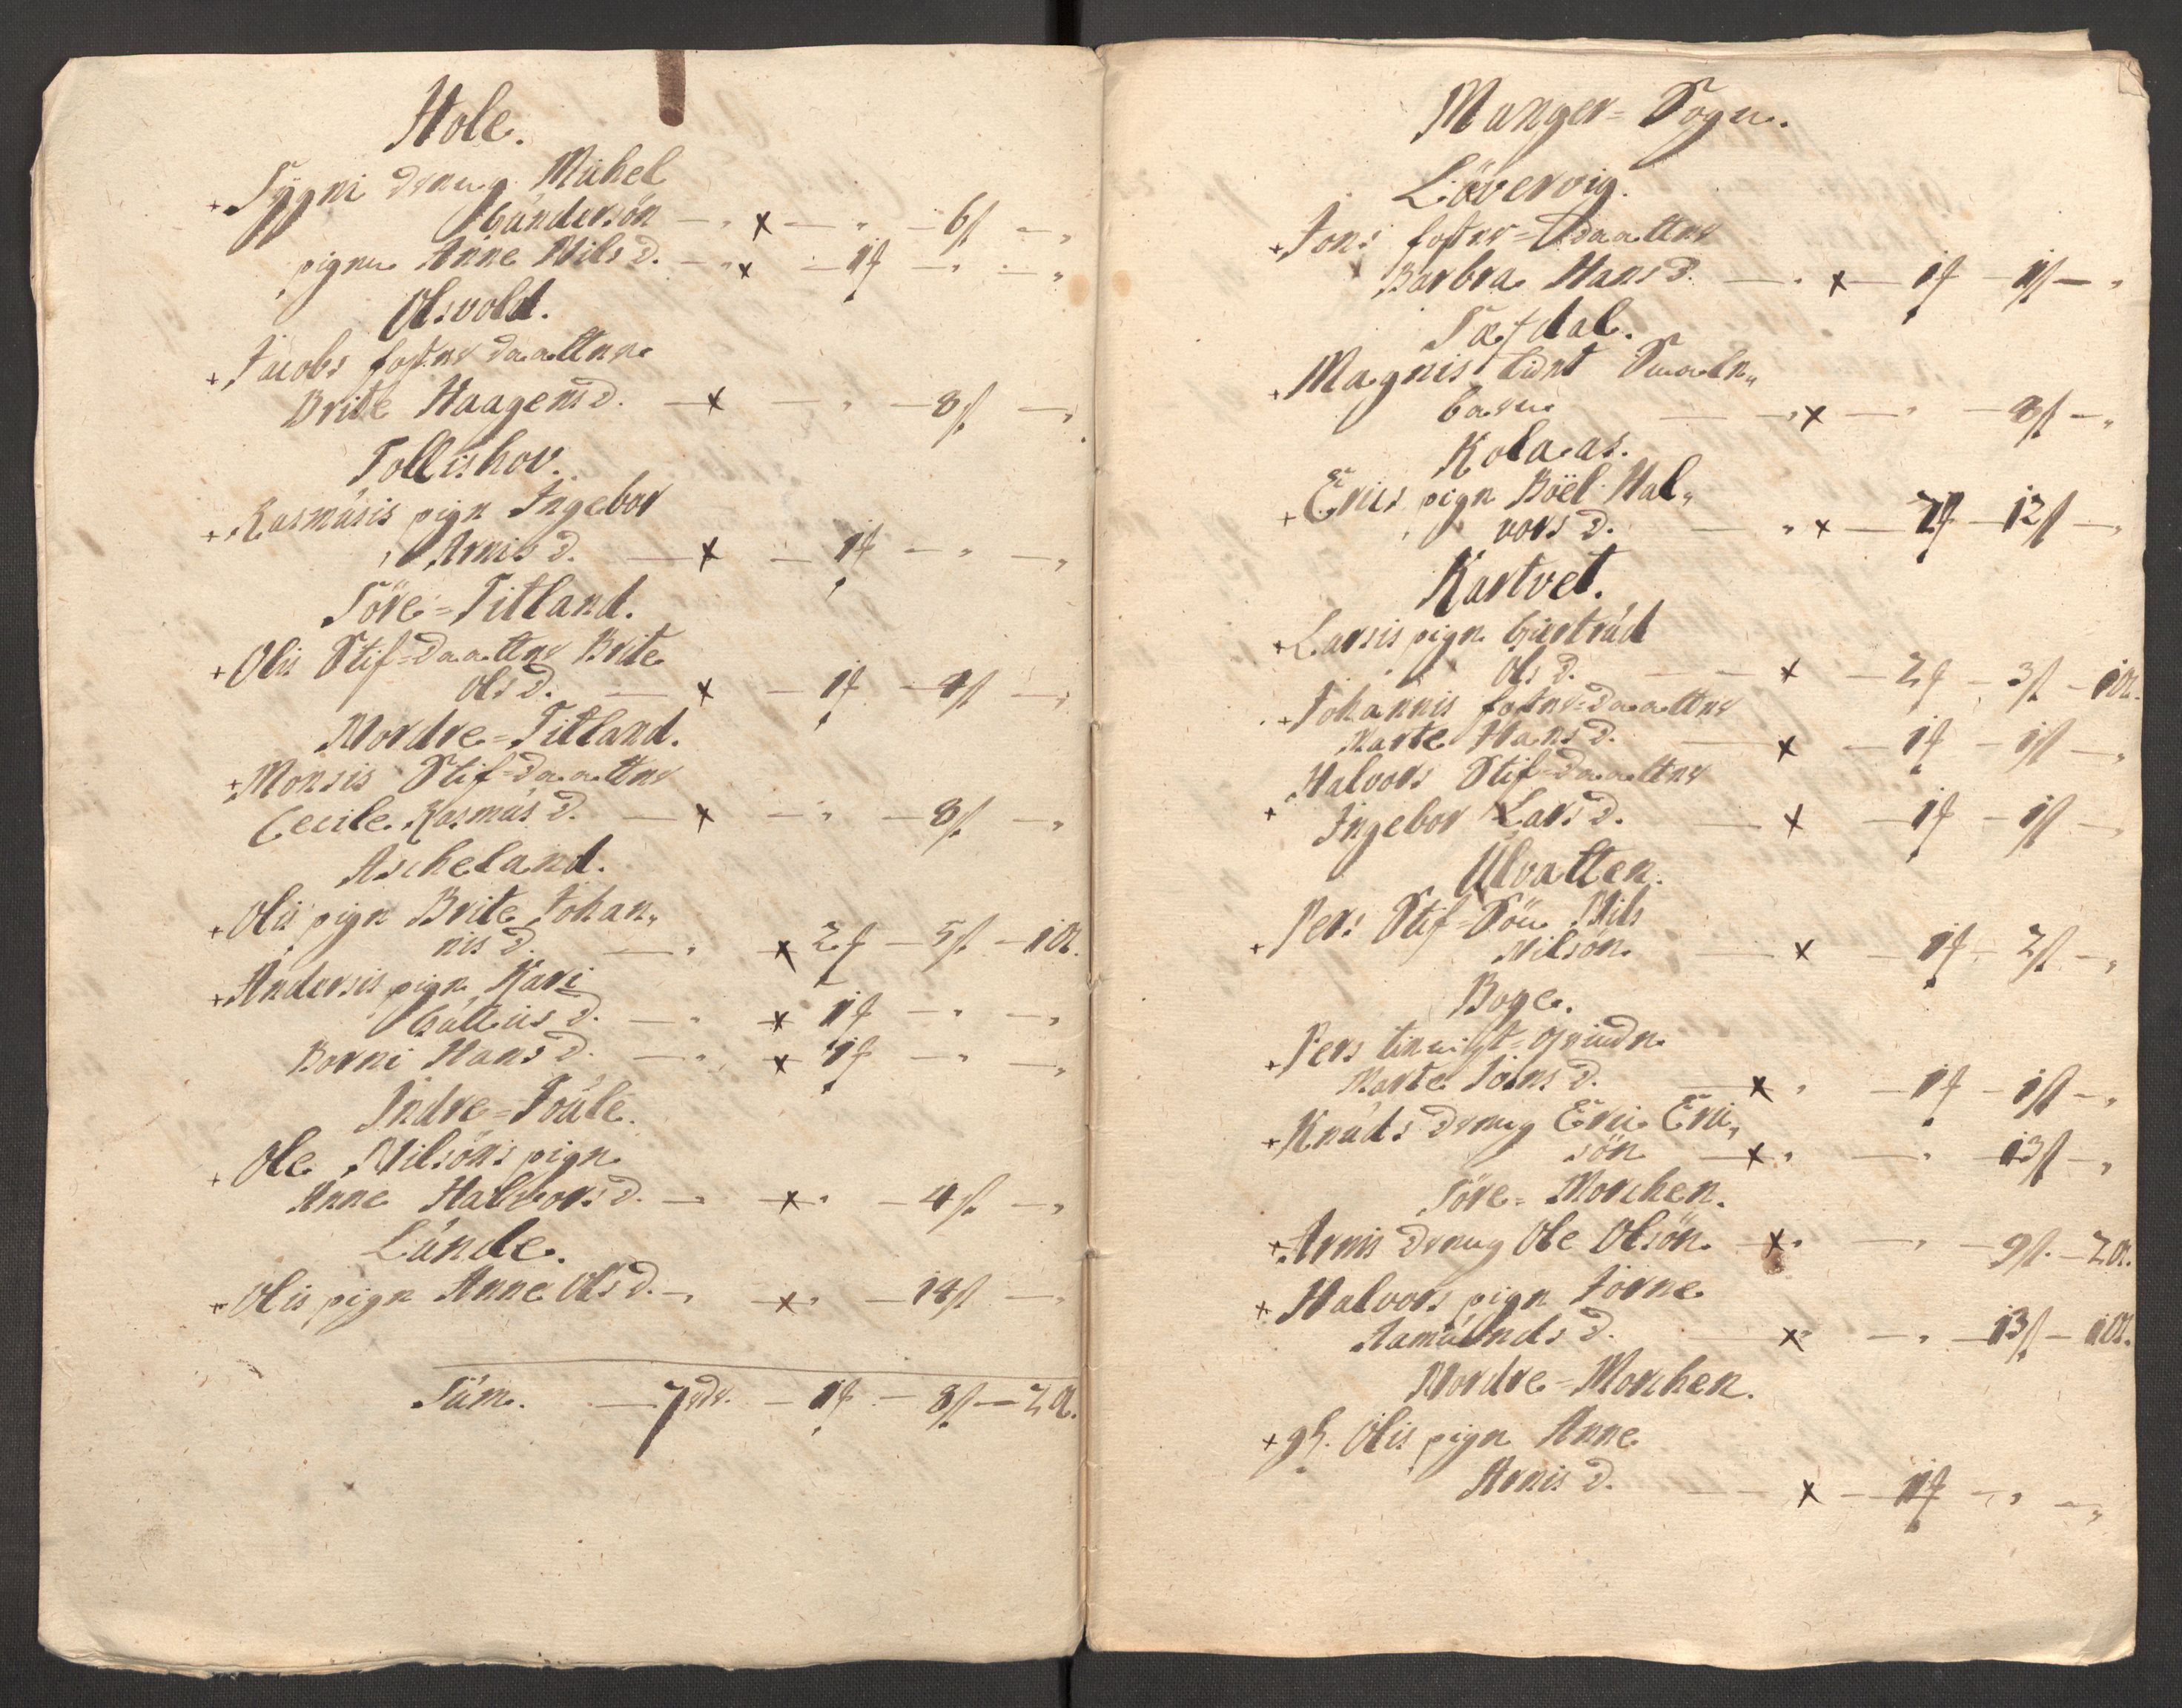 Hole.
+ Tygni dreng Michel
Gundersön — " x — " — 6 ß — "
pigen Anne Nils d. — " x — 1 f — " — "
Olsvold.
+ Jacobs foster daatter
Brite Haagens d. — x — " — 8 ß — "
Tollishov.
+ Rasmusis pige Ingebor
Arnis d. — x — 1 f — " — "
Söre = Titland.
+ Olis Stif = daatter Brite
Ols d. — x — 1 f — 4 ß — "
Nordre = Titland.
+ Monsis Stif = daatter
Cecile Rasmus d. — x — " — 8 ß — "
Ascheland.
+ Olis pige Brite Johan,,
nis d. — " x 2 f — 5 ß — 1 α.
+ Andersis pige Kari
Guttis d. — " x 1 f — " — "
Borni Hans d. — " x 1 f — " — "
Indre = Toule.
+ Ole Nilsöns pige
Anne Halvors d. — " x " — 4 ß — "
Lunde.
+ Olis pige Anne Ols d. — " x " — 14 ß — "
Sum. — 7 rdr. — 1 f — 8 ß — 2 α.
Manger = Sogn.
Lövervig.
+ Jons foster = daatter
Barbra Hans d. — " x — 1 f — 1 ß — "
Tæsdal.
+ Magnis tient Smale,,
barn — " x — " — 8 ß — "
Kolaas.
+ Erics pige Böel Hal,,
vors d. — " x — 2 f — 12 ß — "
Kartvet.
+ Larsis pige Giertrud
Ols d. — x — 2 f — 3 ß — 1 α.
+ Johannis foster = daatter
Marte Hans d. — x — 1 f — 1 ß — "
+ Halvors Stif = daatter
Ingebor Lars d. — x — 1 f — 1 ß — "
Ulvatten.
+ Pers Stif = Sön Nils
Nilsön. — x — 1 f — 2 ß — "
Boge.
+ Pers
Marte Joens d. — x " — 1 f — 1 ß — "
+ Knuds dreng Eric Eric,,
sön — x " — " — 13 ß — "
Söre = Morchen.
+ Arnis dreng Ole Olsön — x " — " — 9 ß. — 2 α.
+ Halvors pige Jorne
Aamunds d. — x " — " — 13 ß — 1 α.
Nordre = Morchen.
+ gl. Olis pige Anne
Arnis d. — x — 1 f — " — "